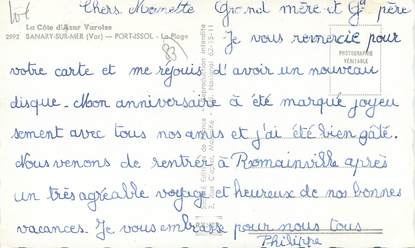 Lot
Chers Mamette Grand mère et Gd père
La Côte d'Azur Varoise
2992 SANARY-SUR-MER (Var) — PORT-ISSOL - La Plage
83
PHOTOGRAPHIE
VÉRITABLE
Je vous remercie pour
votre carte et me rejouis d'avoir un nouveau
disque. Mon anniversaire à été marqué joyeu
sement avec tous nos amis et j'ai été bien gâté.
Nous venons de rentrer à Romainville après
un très agréable voyage et heureux de nos bonnes
vacances. Je vous embrasse pour nous tous
Philippe